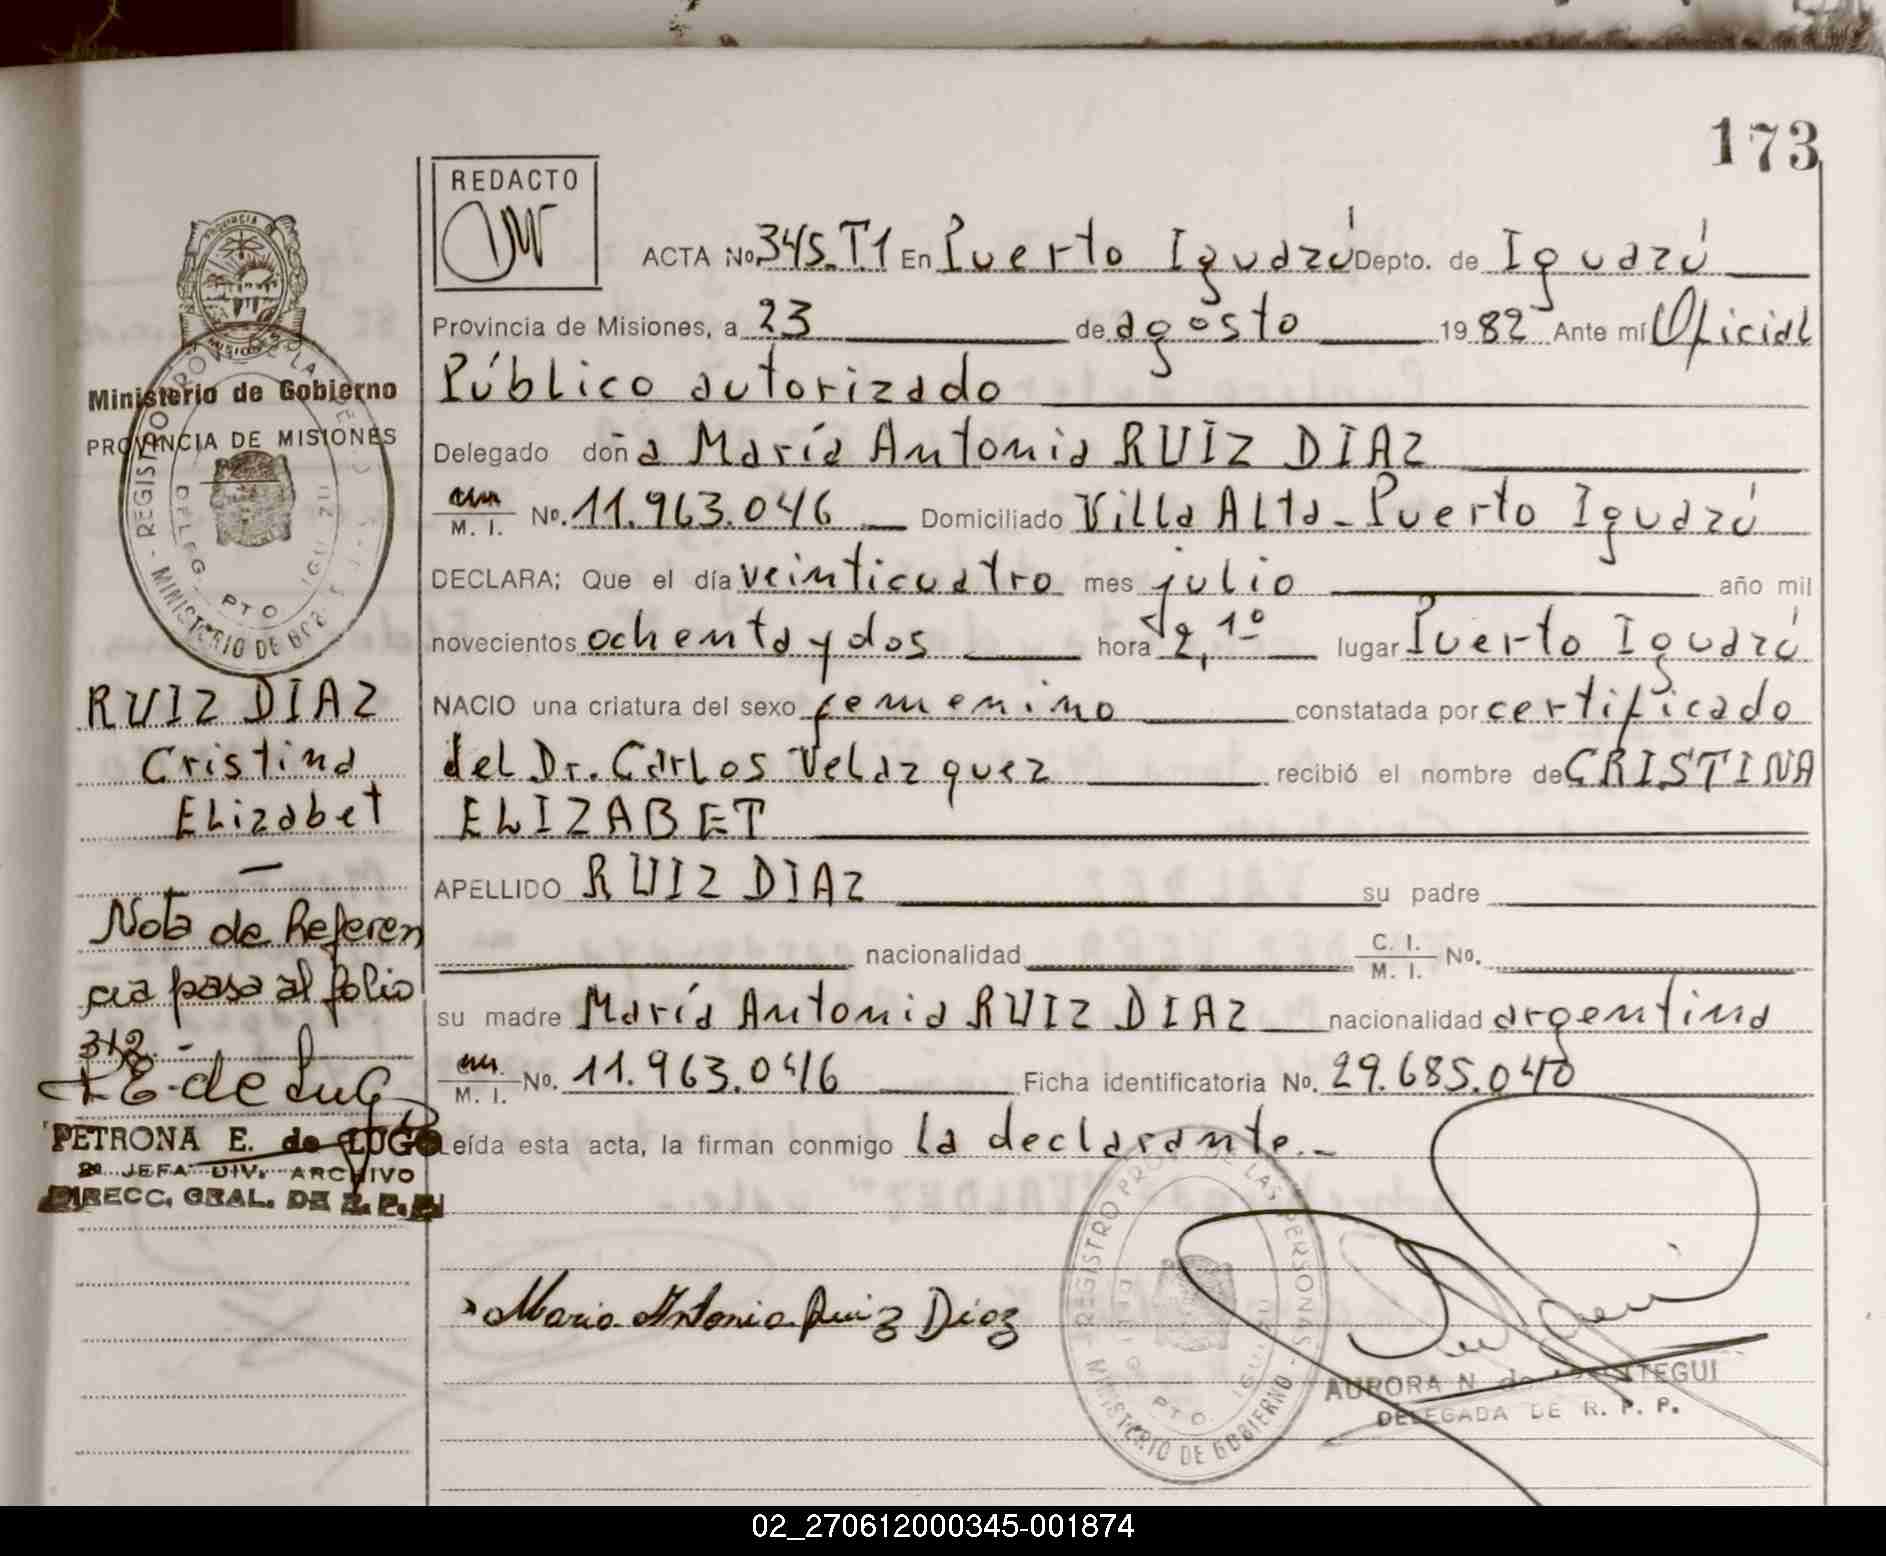 173
REDACTO
ACTA No. 345.T.1 En Puerto Iguazú Depto. de Iguazú
Provincia de Misiones, a 23 de agosto 1982 Ante mí Oficial
Público autorizado
Delegado doña María Antonia RUIZ DIAZ
M. I. No. 11.963.046 Domiciliado Villa Alta - Puerto Iguazú
DECLARA; Que el día veinticuatro mes julio año mil
novecientos ochenta y dos hora 2,10 lugar Puerto Iguazú
NACIO una criatura del sexo femenino constatada por certificado
del Dr. Carlos Velazquez recibió el nombre de CRISTINA
ELIZABET
APELLIDO RUIZ DIAZ su padre
nacionalidad C. I. M. I. No.
su madre María Antonia RUIZ DIAZ nacionalidad argentina
M. I. No. 11.963.046 Ficha identificatoria No. 29.685.040
Leída esta acta, la firman conmigo la declarante.-
Maria Antonia Ruiz Diaz
AURORA N. de
DELEGADA DE R. P. P.
REGISTRO PROV. DE LAS PERSONAS - MINISTERIO DE GOBIERNO
DELEG. PTO. IGUAZU
PROVINCIA
MISIONES
Ministerio de Gobierno
PROVINCIA DE MISIONES
REGISTRO PROV. DE LAS - MINISTERIO DE
DELEG. PTO.
RUIZ DIAZ
Cristina
Elizabet
Nota de Referen
cia pasa al folio
312.-
E. de Lugo
PETRONA E. de LUGO
2a JEFA DIV. ARCHIVO
DIRECC. GRAL. DE R. P. P.
02_270612000345-001874